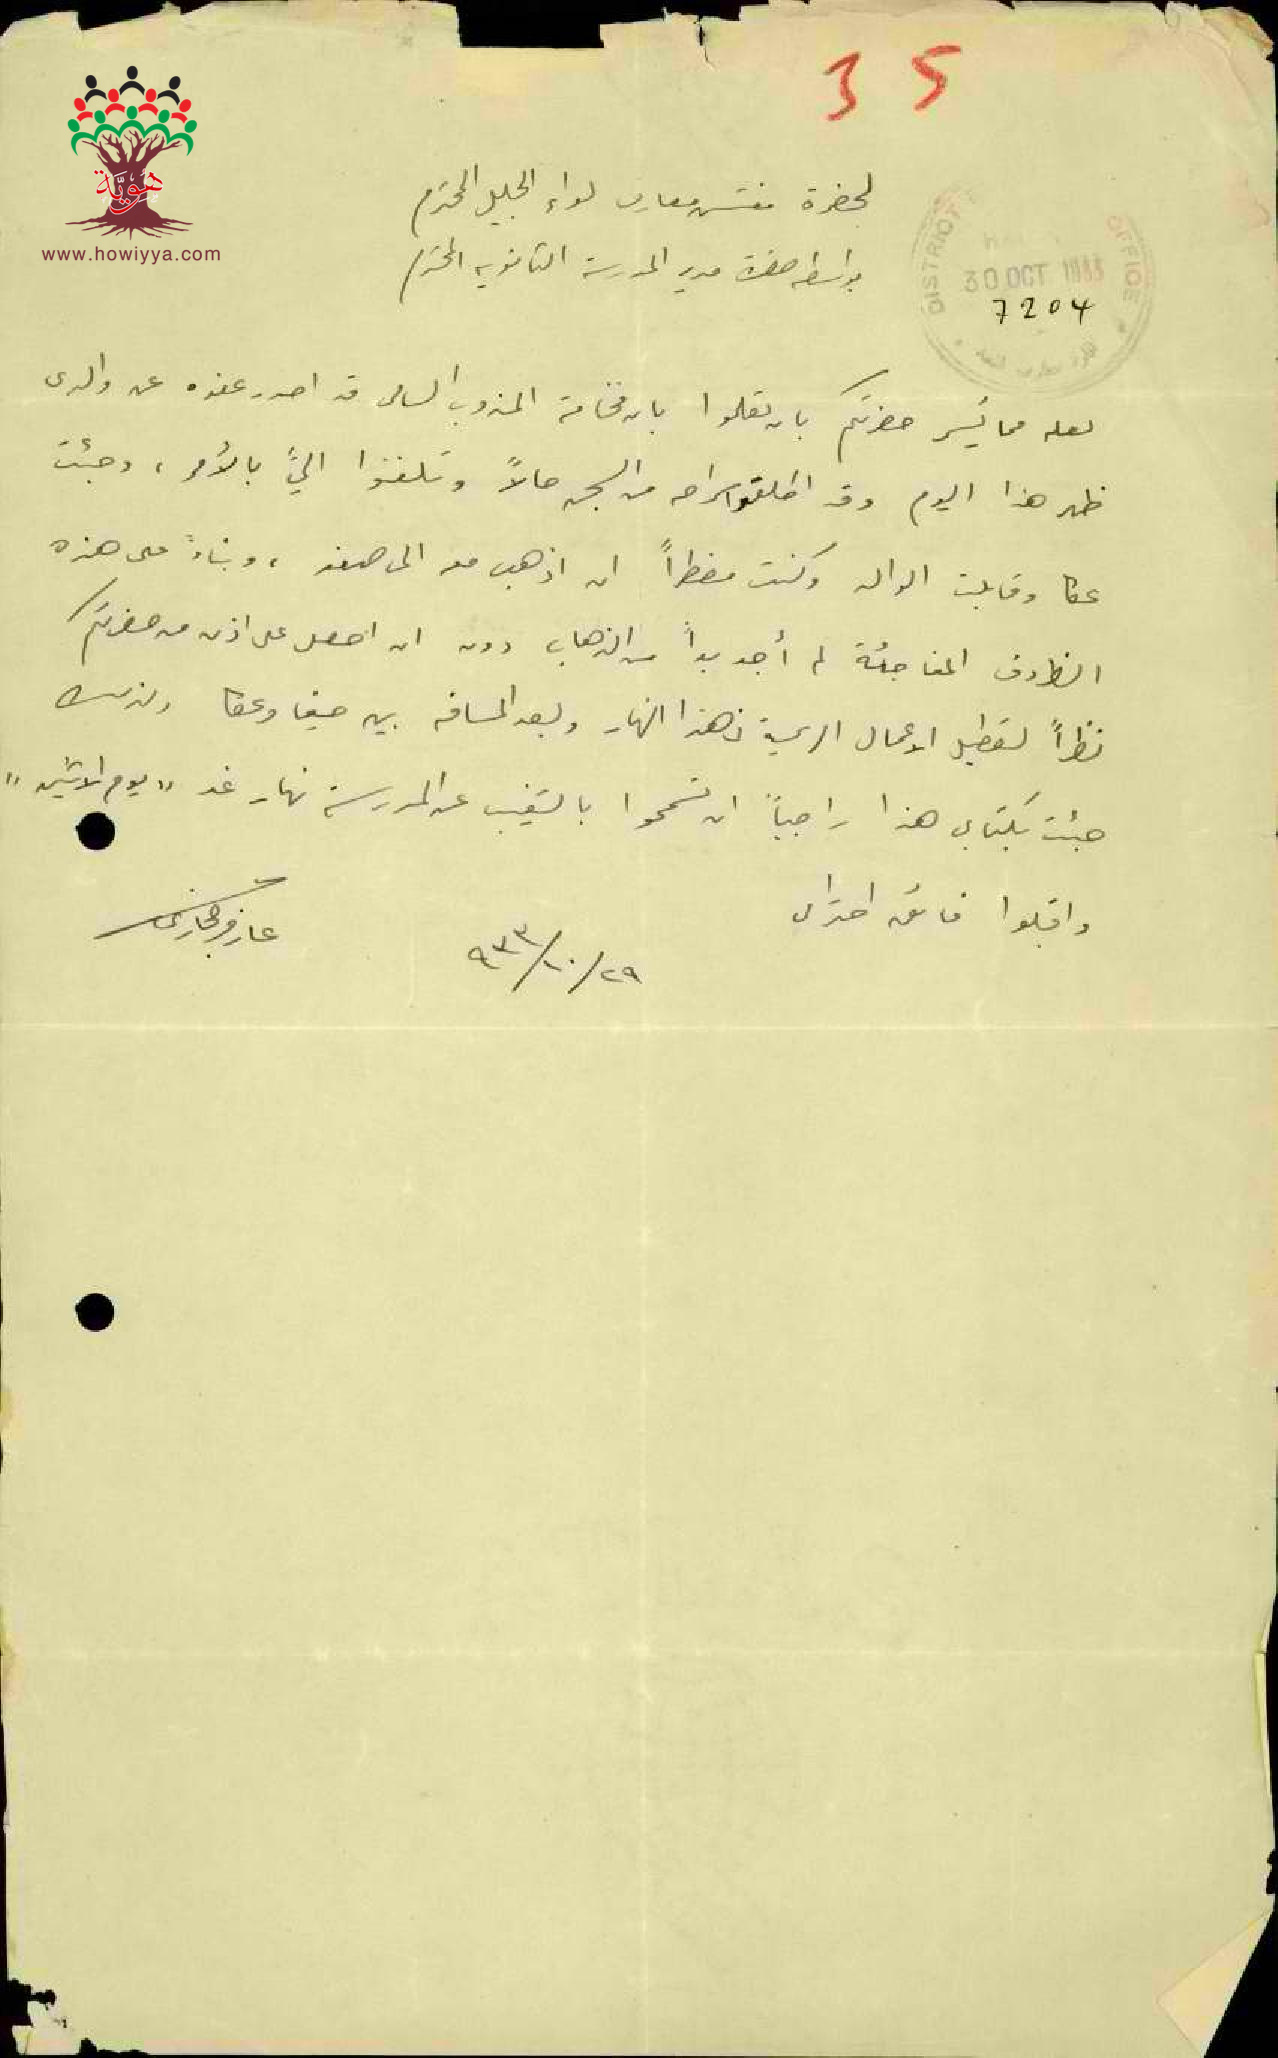 35
هوية
www.howiyya.com
لحضرة مفتش معارف لواء الجليل المحترم
بواسطة حضرة مدير المدرسة الثانوية المحترم
DISTRICT OFFICE
30 OCT 1933
7204
لعله مما يسر حضرتكم بان تعلموا بان فخامة المندوب السامي قد اصدر عفوه عن والدي
ظهر هذا اليوم وقد اطلقوا سراحه من السجن حالاً وتلفنوا اليّ بالأمر، وجئت
عكا وقابلت الوالد وكنت مضطراً ان اذهب معه الى صفد، وبناءً على هذه
الظروف المفاجئة لم أجد بداً من الذهاب دون ان احصل على اذن من حضرتكم
نظراً لتعطيل الاعمال الرسمية في هذا النهار ولبعد المسافة بين حيفا وعكا ولذلك
جئت بكتابي هذا راجياً ان تسمحوا بالتغيب عن المدرسة نهار غد "يوم الاثنين"
واقبلوا فائق احترامي
٢٩/١٠/٩٣٣
عارف